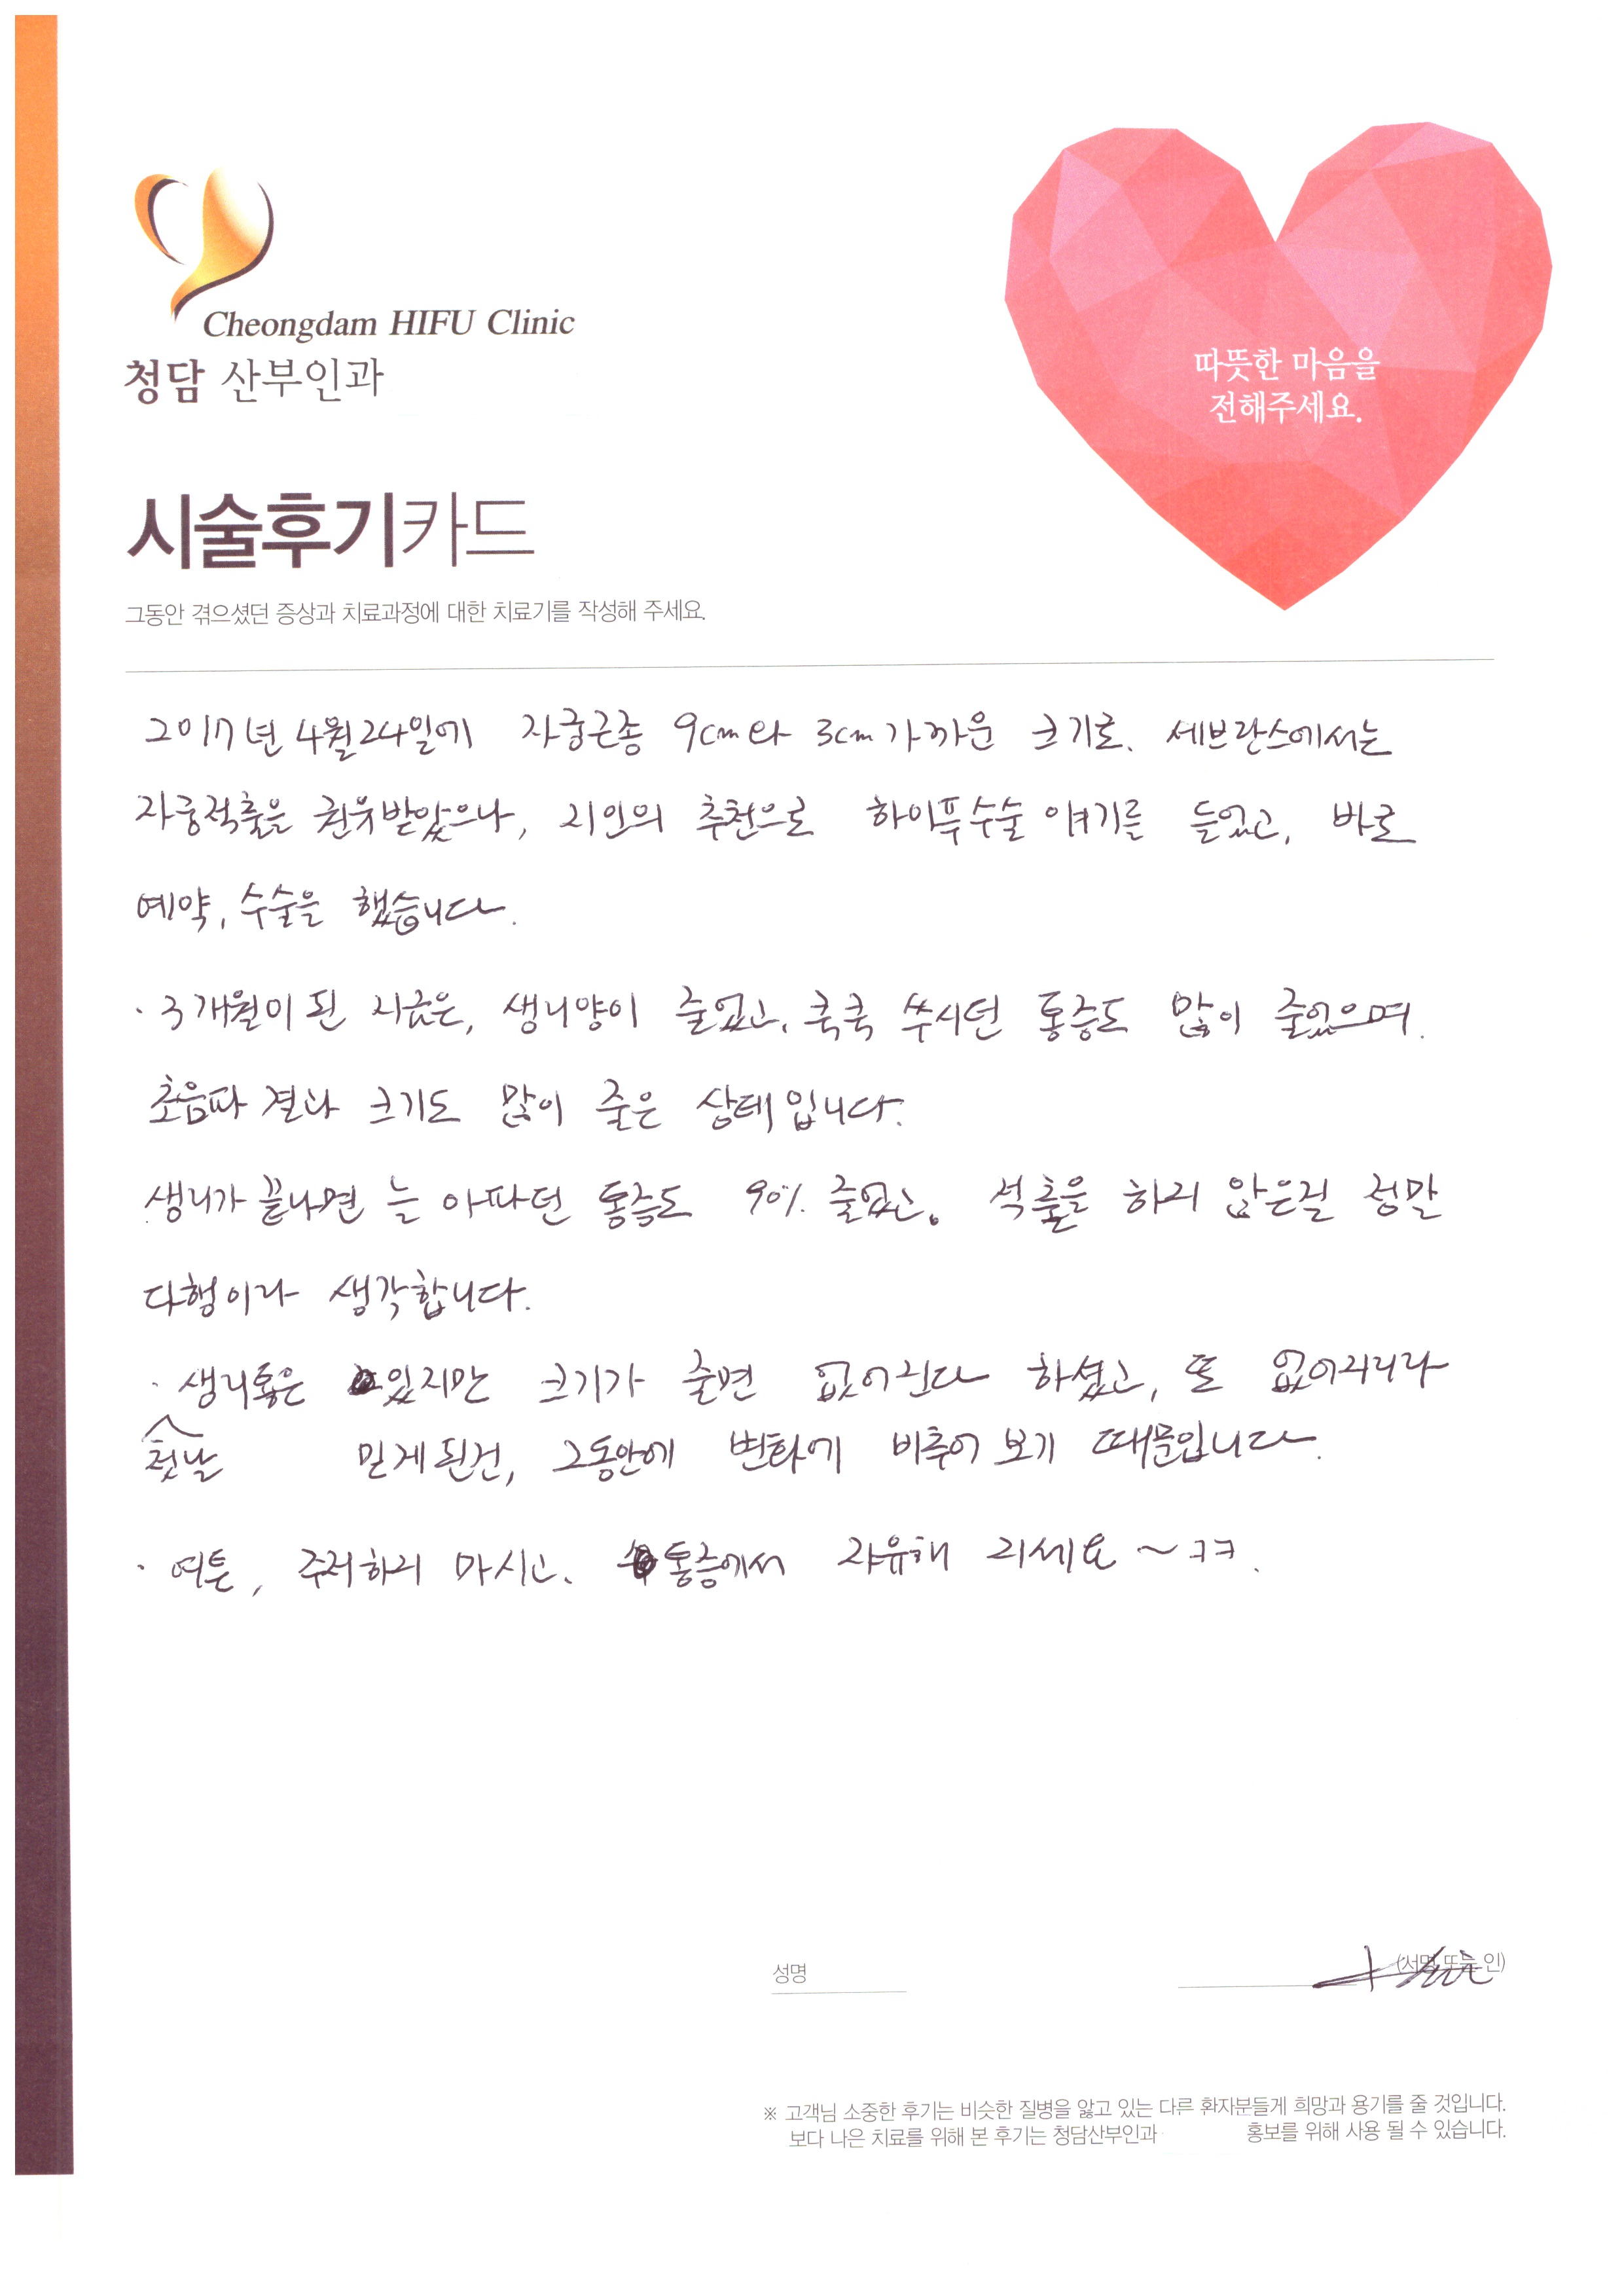 Cheongdam HIFU Clinic
청담 산부인과
따뜻한 마음을
전해주세요.
시술후기카드
그동안 겪으셨던 증상과 치료과정에 대한 치료기를 작성해 주세요.
2017년 4월 24일에 자궁근종 9cm와 3cm 가까운 크기로, 세브란스에서는
자궁적출을 권유받았으나, 지인의 추천으로 하이푸수술 얘기를 들었고, 바로
예약, 수술을 했습니다.
· 3개월이 된 지금은, 생리양이 줄었고, 쿡쿡 쑤시던 통증도 많이 줄었으며,
초음파 결과 크기도 많이 줄은 상태입니다.
생리가 끝나면 늘 아파던 통증도 90% 줄었고, 적출을 하지 않은걸 정말
다행이라 생각합니다.
· 생리통은 있지만 크기가 줄면 없어진다 하셨고, 또 없어지리라
첫날 믿게된건, 그동안에 변화에 비추어 보기 때문입니다.
· 여튼, 주저하지 마시고, 통증에서 자유해 지세요 ~ ㅋㅋ.
성명
(서명 또는 인)
※ 고객님 소중한 후기는 비슷한 질병을 앓고 있는 다른 환자분들게 희망과 용기를 줄 것입니다.
보다 나은 치료를 위해 본 후기는 청담산부인과 홍보를 위해 사용 될 수 있습니다.